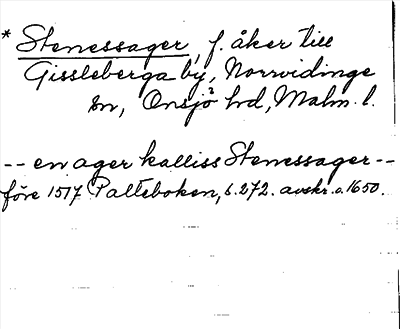 * Stenessager, f. åker till
Gissleberga by, Norrvidinge
sn, Onsjö hd, Malm. l.
-- en ager kalliss Stenessager --
före 1517 Palteboken, s. 272. avskr. c. 1650.